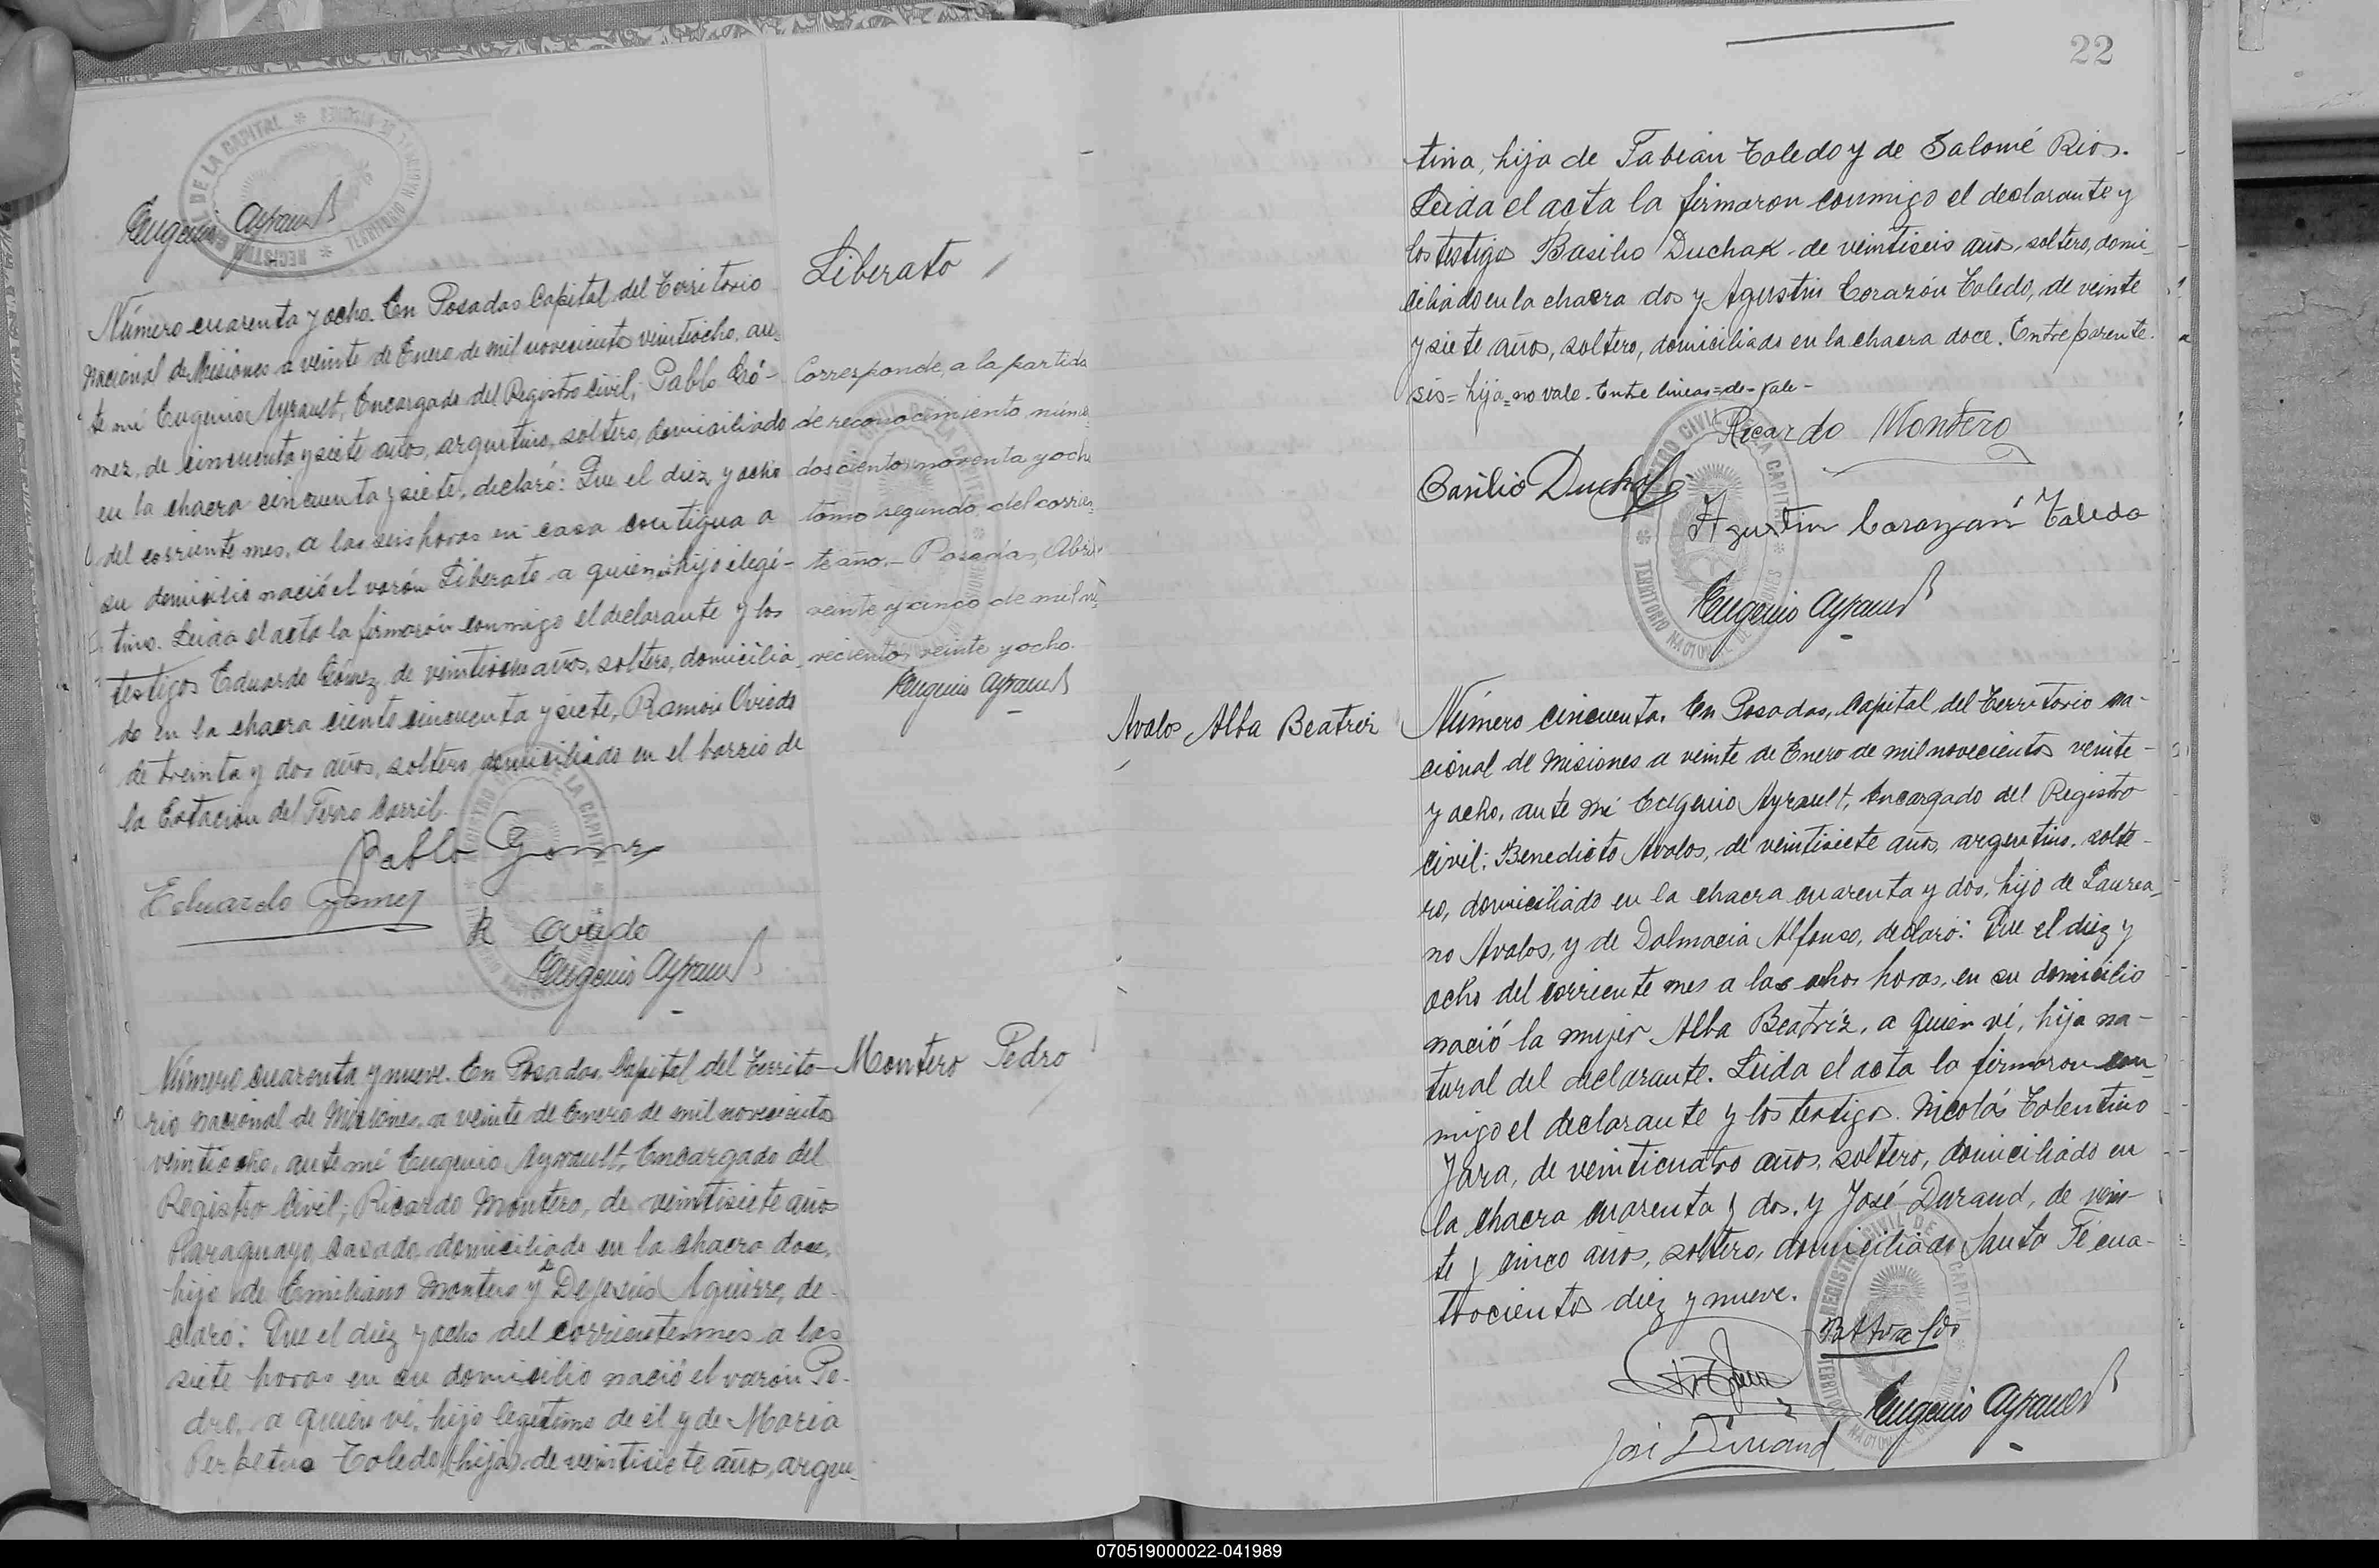 Eugenio Ayrault
Número cuarenta y ocho. En Posadas Capital del Territorio
Nacional de Misiones a veinte de Enero de mil novecientos veintiocho, an-
te mí Eugenio Ayrault, Encargado del Registro Civil; Pablo Gó-
mez, de cincuenta y siete años, argentino, soltero, domiciliado
en la chacra cincuenta y siete, declaró: Que el diez y ocho
del corriente mes, a las seis horas en casa contigua a
su domicilio nació el varón Liberato a quien ví hijo ilegí-
timo. Leida el acta la firmaron conmigo el declarante y los
testigos Eduardo Gómez de años, soltero, domicilia
do en la chacra ciento cincuenta y siete, Ramón Oviedo
de treinta y dos años, soltero domiciliado en el barrio de
la Estación del Ferro Carril.
Pablo Gomez
Eduardo Gomez
R Oviedo
Eugenio Ayrault
Liberato
Corresponde, a la partida
de reconocimiento núme
doscientos noventa y ocho
tomo segundo del corrien
te año.- Posadas, Abril
veinte y cinco de mil no
vecientos veinte y ocho.
Eugenio Ayrault
Número cuarenta y nueve. En Posadas, Capital del Territo-
rio Nacional de Misiones, a veinte de Enero de mil novecientos
veintiocho, ante mí Eugenio Ayrault, Encargado del
Registro Civil; Ricardo Montero, de veintisiete años
Paraguayo, casado, domiciliado en la chacra doce,
hijo de Emiliano Montero y de Dejesús Aguirre, de-
claró: Que el diez y ocho del corriente mes a las
siete horas en su domicilio nació el varón Pe-
dro, a quien ví, hijo legítimo de él y de Maria
Perpetua Toledo (hija) de veintisiete años, argen-
Montero Pedro
22
tina, hija de Fabián Toledo y de Salomé Rios.
Leida el acta la firmaron conmigo el declarante y
los testigos Basilio Duchak de veintiseis años, soltero, domi-
ciliado en la chacra dos y Agustin Corazón Toledo, de veinte
y siete años, soltero, domiciliado en la chacra doce. Entre parente-
sis= hija=no vale. Entre lineas=de=vale-
Ricardo Montero
Basilio Duchak
Agustin Corazón Toledo
Eugenio Ayrault
Avalos Alba Beatriz
Número cincuenta. En Posadas, Capital del Territorio na-
cional de Misiones a veinte de Enero de mil novecientos veinte-
y ocho, ante mí Eugenio Ayrault, Encargado del Registro
Civil; Benedicto Avalos, de veintisiete años, argentino, solte-
ro, domiciliado en la chacra cuarenta y dos, hijo de Laurea-
no Avalos, y de Dalmacia Alfonso, declaró: Que el diez y
ocho del corriente mes a las ochos horas, en su domicilio
nació la mujer Alba Beatriz, a quien ví, hija na-
tural del declarante. Leida el acta la firmaron con-
migo el declarante y los testigos Nicolás Tolentino
Jara, de veinticuatro años, soltero, domiciliado en
la chacra cuarenta y dos, y José Durand, de vein-
te y cinco años, soltero, domiciliado Santa Fé cua-
trocientos diez y nueve.
Eugenio Ayrault
José Durand
REGISTRO CIVIL DE LA CAPITAL
TERRITORIO NACIONAL DE MISIONES